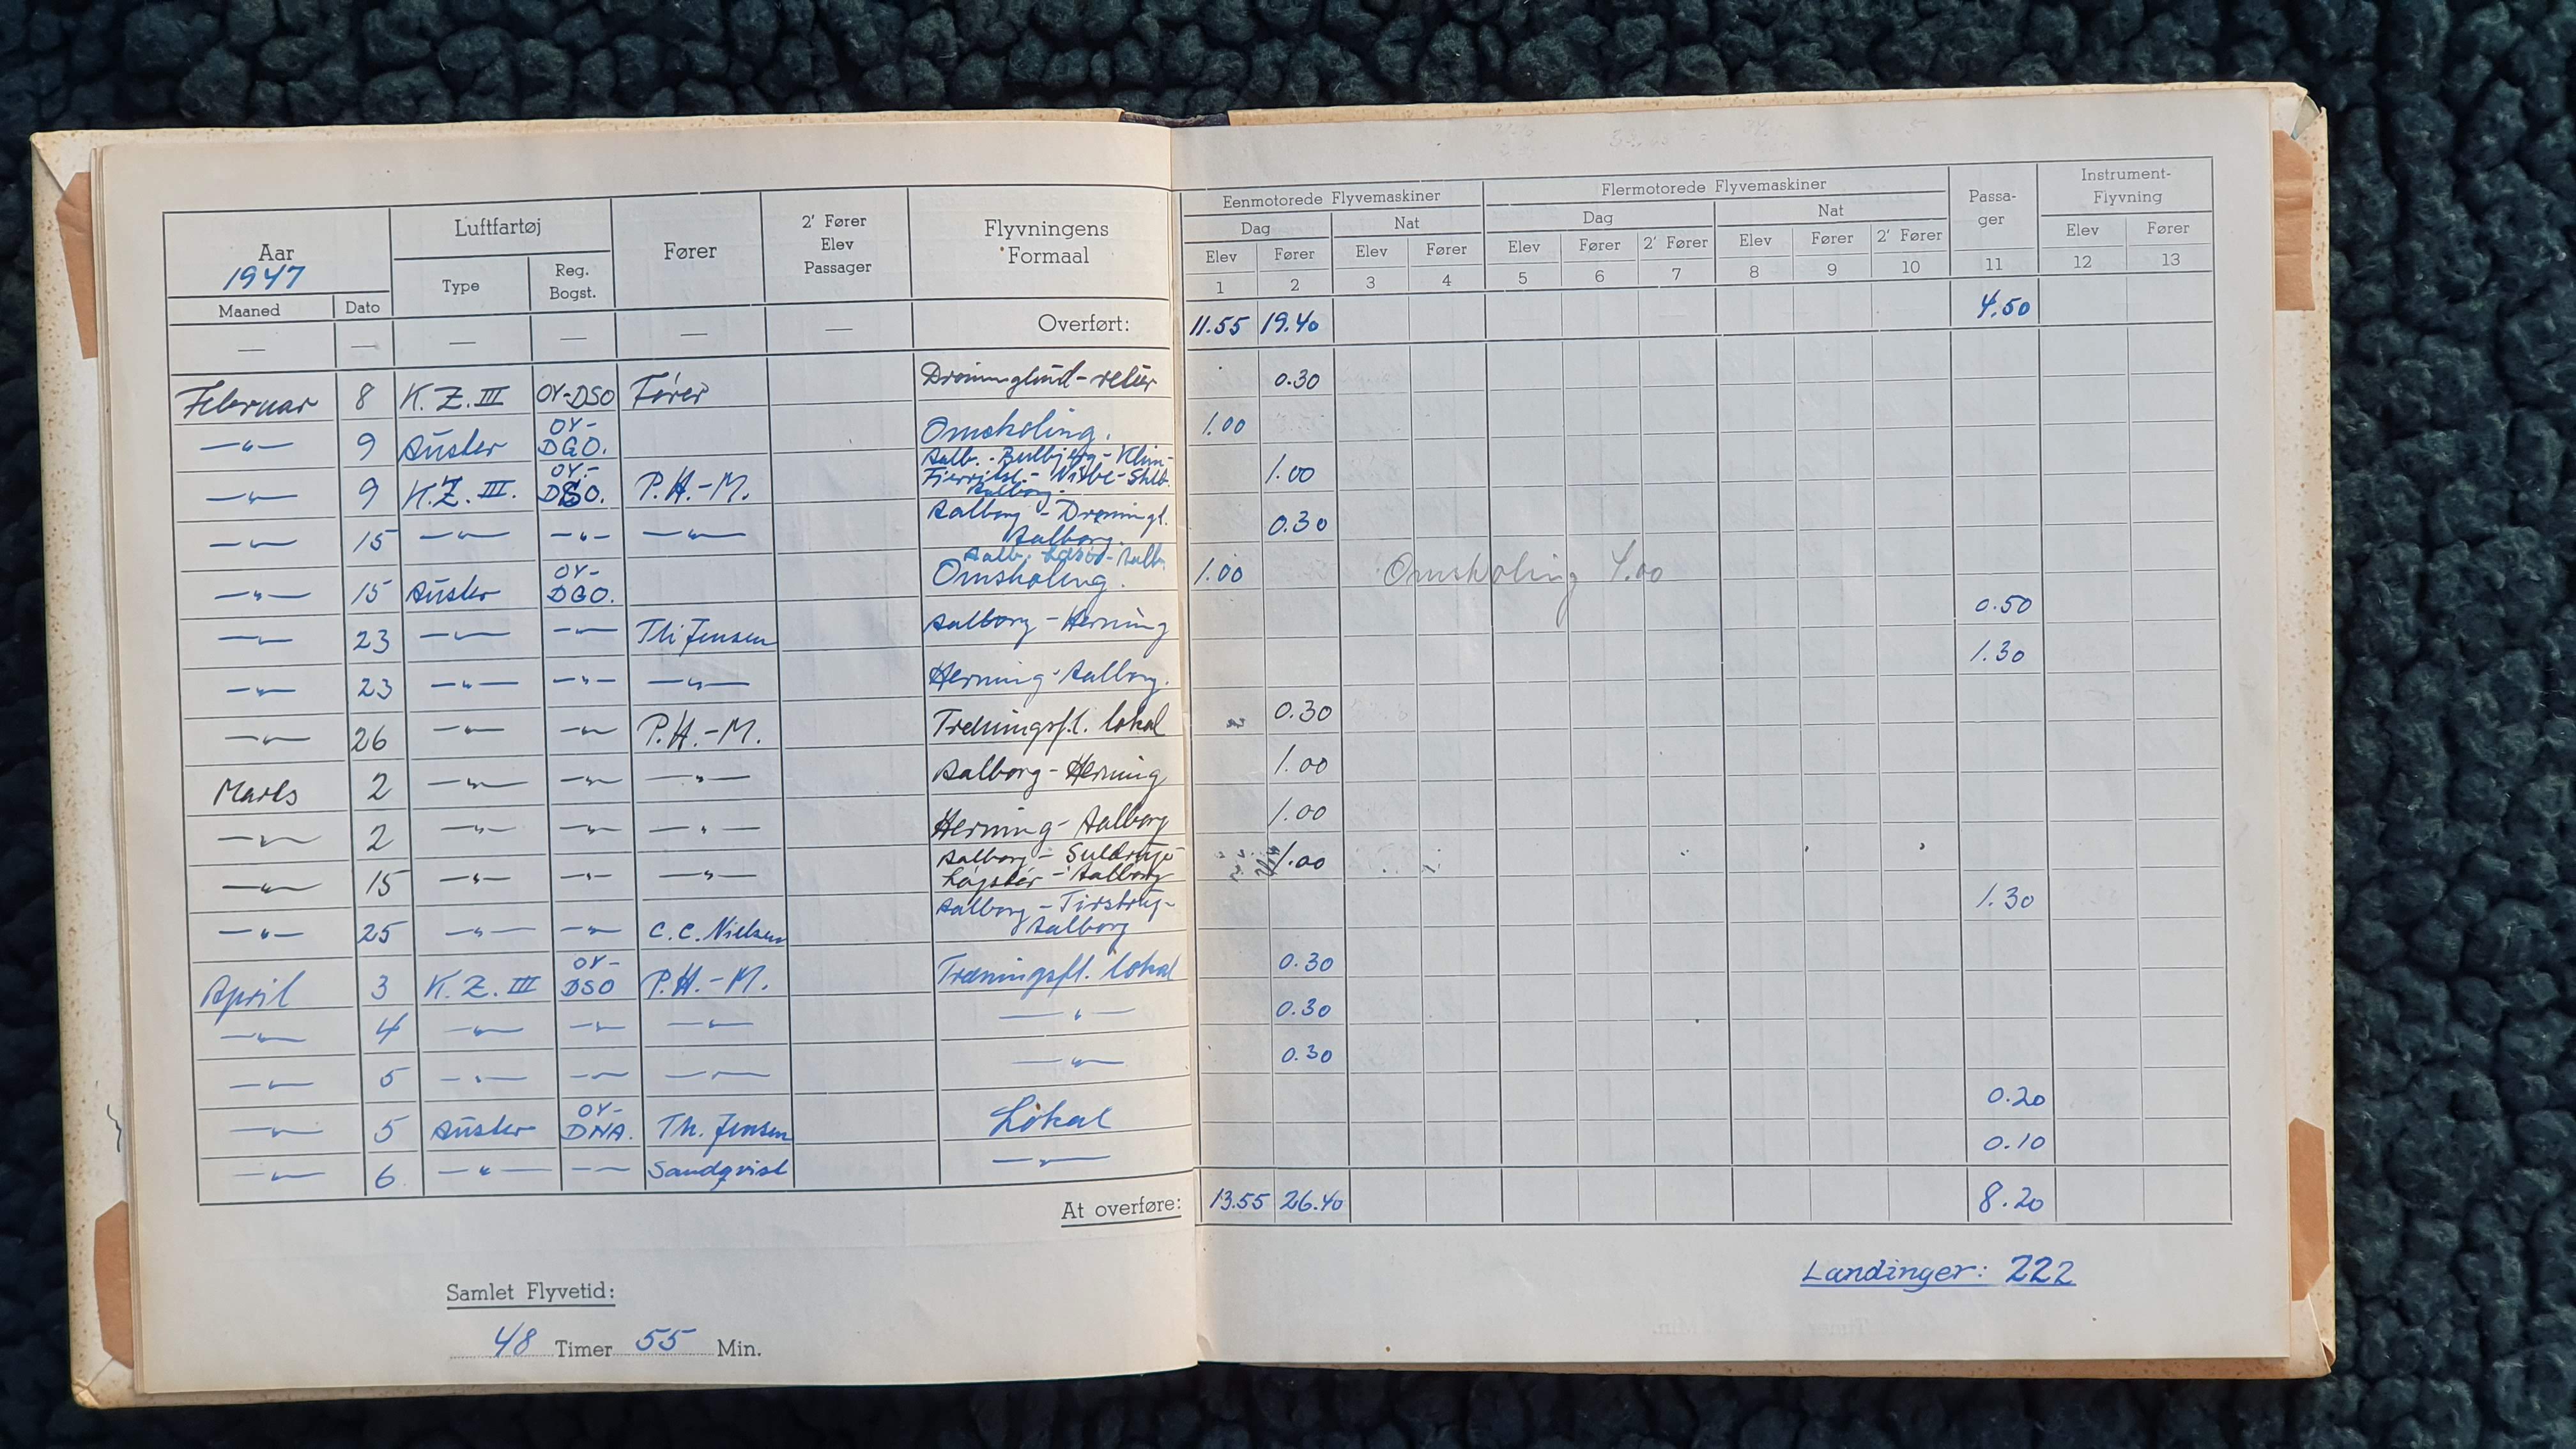 Aar 1947 Luftfartøj Fører 2' Fører Elev Passager Flyvningens Formaal Eenmotorede Flyvemaskiner Flermotorede Flyvemaskiner Passa- ger Instrument- Flyvning
Dag Nat Dag Nat
Maaned Dato Type Reg. Bogst. Elev Fører Elev Fører Elev Fører 2' Fører Elev Fører 2' Fører Elev Fører
1 2 3 4 5 6 7 8 9 10 11 12 13
— — — — — — Overført: 11.55 19.40 4.50
Februar 8 K.Z.III OY-DSO Fører Dronninglund-retur 0.30
—"— 9 Auster OY-DGO. Omskoling. 1.00
—"— 9 K.Z.III. OY-DSO. P.H.-M. Aalb.-Bulbjerg-Klim- Nibe- Aalborg. 1.00
—"— 15 —"— —"— —"— Aalborg - Dronningl. Aalborg. 0.30
—"— 15 Auster OY-DGO. Aalb. Læsø-Aalb. Omskoling. 1.00 Omskoling 4.00
—"— 23 —"— —"— Th Jensen Aalborg - Herning 0.50
—"— 23 —"— —"— —"— Herning-Aalborg. 1.30
—"— 26 —"— —"— P.H.-M. Træningsfl. lokal 0.30
Marts 2 —"— —"— —"— Aalborg - Herning 1.00
—"— 2 —"— —"— —"— Herning - Aalborg 1.00
—"— 15 —"— —"— —"— Aalborg - Suldrup- Løgstør - Aalborg 1.00
—"— 25 —"— —"— C.C. Nielsen Aalborg - Tirstrup- Aalborg 1.30
April 3 K.Z.III OY-DSO P.H.-M. Træningsfl. lokal 0.30
—"— 4 —"— —"— —"— —"— 0.30
—"— 5 —"— —"— —"— —"— 0.30
—"— 5 Auster OY-DNA. Th. Jensen Lokal 0.20
—"— 6 —"— —"— Sandqvist —"— 0.10
At overføre: 13.55 26.40 8.20
Landinger: 222
Samlet Flyvetid:
48 Timer 55 Min.